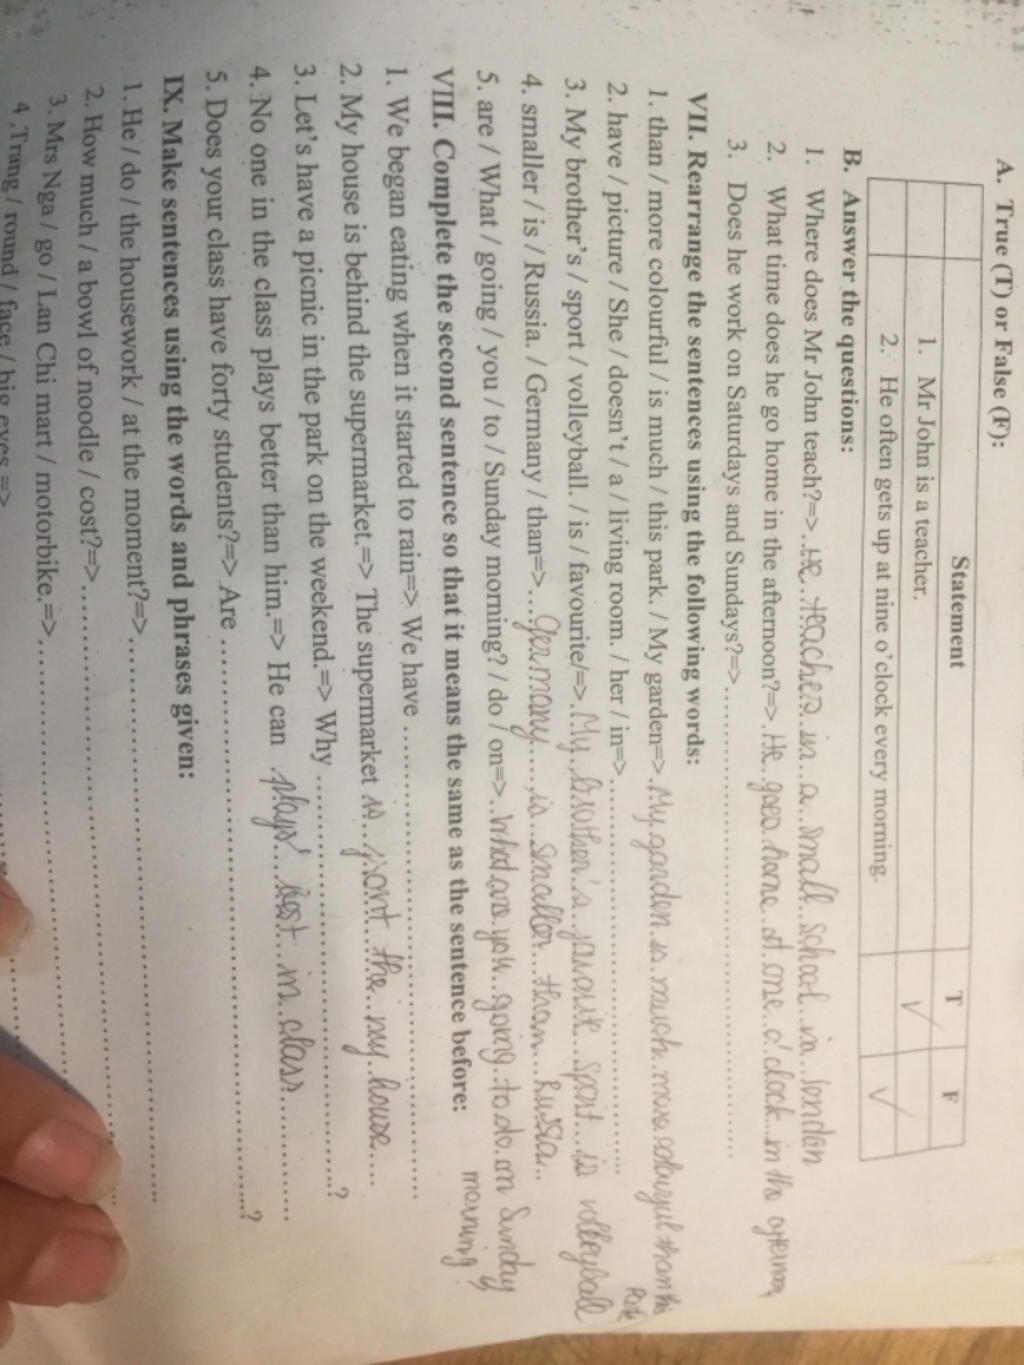 A. True (T) or False (F):
Statement T F
1. Mr John is a teacher. ✓
2. He often gets up at nine o'clock every morning. ✓
B. Answer the questions:
1. Where does Mr John teach?=>..He..teaches..in..a..small..school..in..london
2. What time does he go home in the afternoon?=>.He..goes.home..at.one..o'clock...in the afternoon
3. Does he work on Saturdays and Sundays?=>...............
VII. Rearrange the sentences using the following words:
1. than / more colourful / is much / this park. / My garden=>.My.garden.is.much.more.colourful than this
Park
2. have / picture / She / doesn't / a / living room. / her / in=>...............
3. My brother's / sport / volleyball. / is / favourite/=>.My..brother's..favourit..sport...is volleyball
4. smaller / is / Russia. / Germany / than=>...Germany....is...smaller...than...Russia..
5. are / What / going / you / to / Sunday morning? / do / on=>..What.are.you..going.to do.on Sunday
morning?
VIII. Complete the second sentence so that it means the same as the sentence before:
1. We began eating when it started to rain=> We have ...............
2. My house is behind the supermarket.=> The supermarket is...front...the..my.house....
3. Let's have a picnic in the park on the weekend.=> Why ...............?
4. No one in the class plays better than him.=> He can .plays'...best...in..class...........
5. Does your class have forty students?=> Are ...............?
IX. Make sentences using the words and phrases given:
1. He / do / the housework / at the moment?=>...............
2. How much / a bowl of noodle / cost?=>...............
3. Mrs Nga / go / Lan Chi mart / motorbike.=>...............
4 .Trang / round / face / big eyes =>